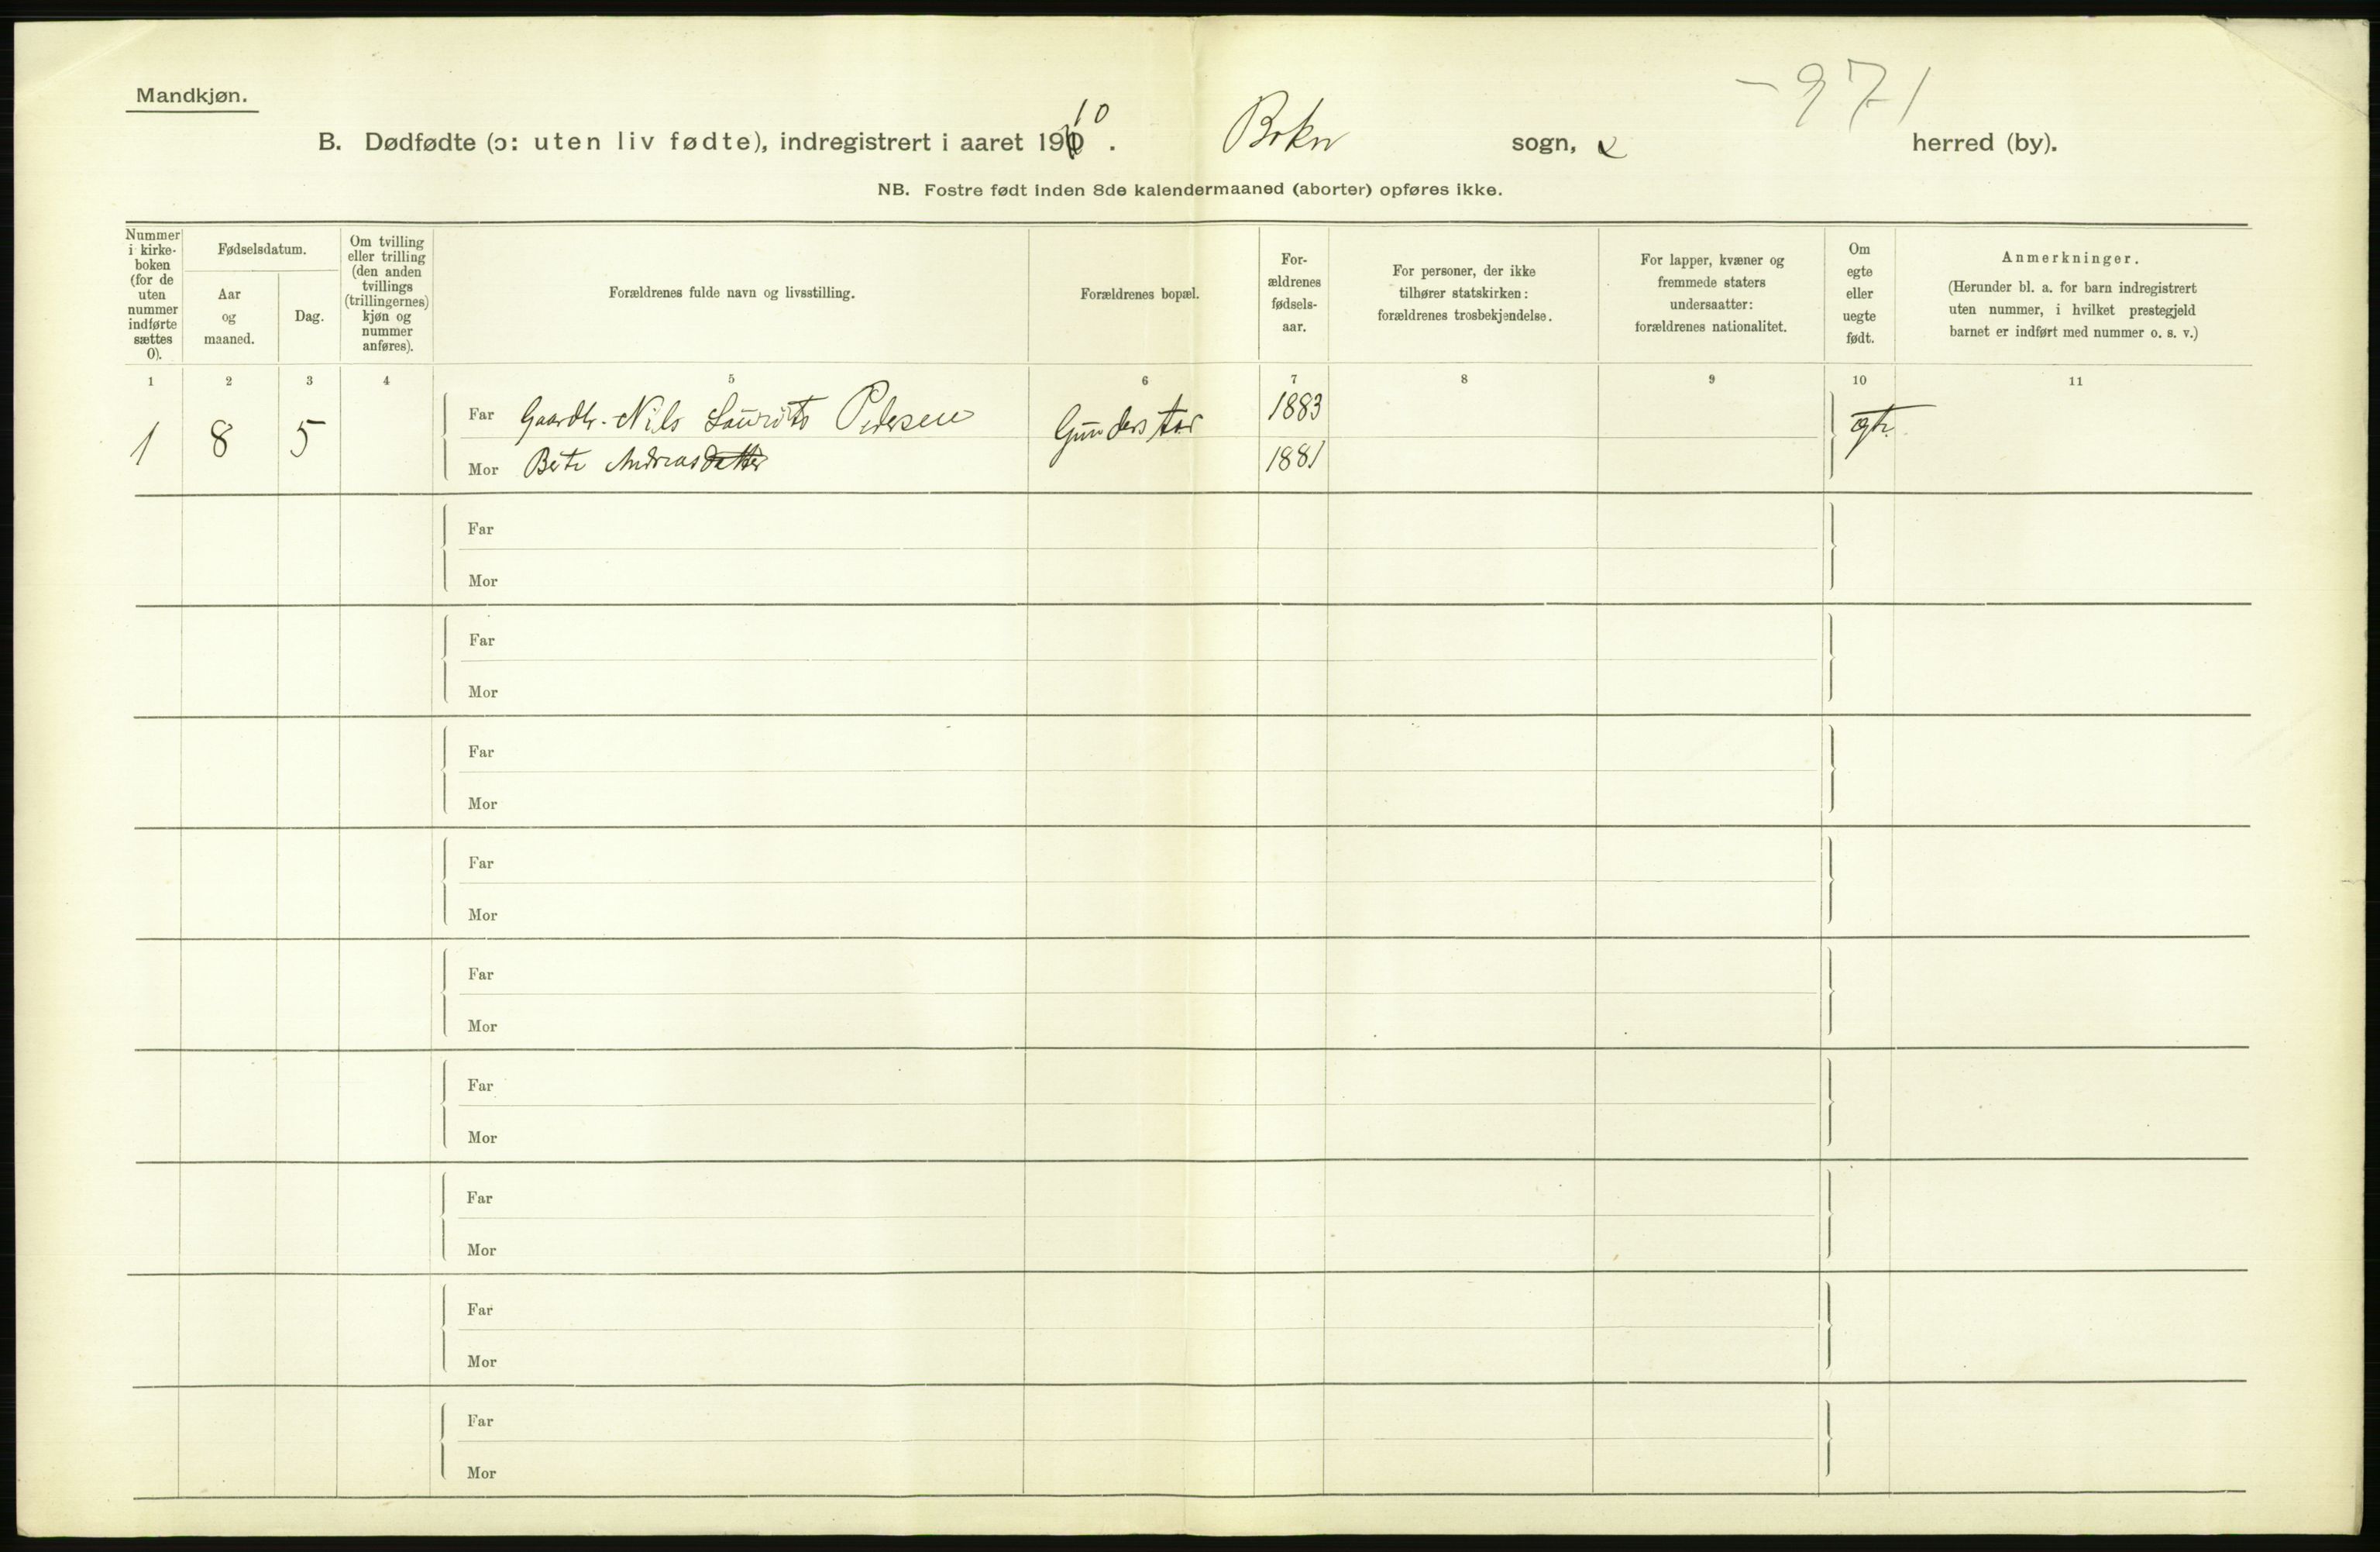 Mandkjøn.
-971
B. Dødfødte (ɔ: uten liv fødte), indregistrert i aaret 1910. Bokn sogn, herred (by).
NB. Fostre født inden 8de kalendermaaned (aborter) opføres ikke.
Nummer i kirke-boken (for de uten nummer indførte sættes 0).
Fødselsdatum.
Aar og maaned.
Dag.
Om tvilling eller trilling (den anden tvillings (trillingernes) kjøn og nummer anføres).
Forældrenes fulde navn og livsstilling.
Forældrenes bopæl.
For-ældrenes fødsels-aar.
For personer, der ikke tilhører statskirken: forældrenes trosbekjendelse.
For lapper, kvæner og fremmede staters undersaatter: forældrenes nationalitet.
Om egte eller uegte født.
Anmerkninger.
(Herunder bl. a. for barn indregistrert uten nummer, i hvilket prestegjeld barnet er indført med nummer o. s. v.)
1 2 3 4 5 6 7 8 9 10 11
1 8 5 Far Gaardbr. Nils Laurits Pedersen 1883
Mor Berte Andreasdatter 1881
Far
Mor
Far
Mor
Far
Mor
Far
Mor
Far
Mor
Far
Mor
Far
Mor
Far
Mor
Far
Mor